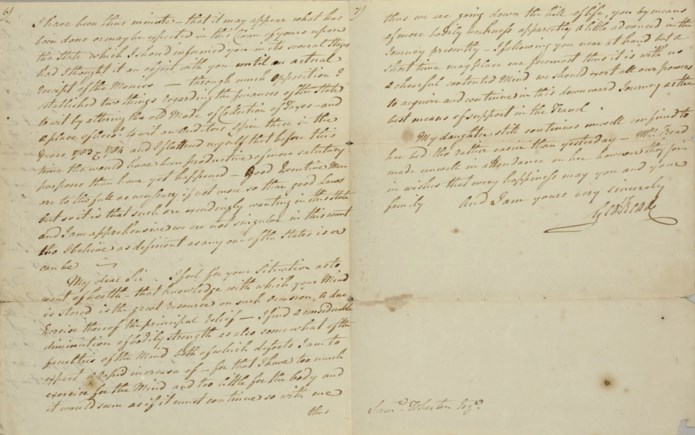 6)
I have been thus minute – that it may appear what has
been done or may be expected in this Claim of yours upon
the State which I should informed you in its several Steps
had I thought it an effect with you until an actual
receipt of the Monies – through much opposition I
established two things regarding the finances of the State
to wit by altering the old Mode of Collection of Taxes – and
a place of to wit an Auditors Office there in the
Years 1783 & 1784 and I flattered myself that before this
time they would have been productive of more salutary
purposes than have yet happened – Good Executive Men
are to the full as necessary if not more so than good Laws
but so it is that such are exceedingly wanting in this State
and I am apprehensive we are not singular in this want
tho I believe as deficient as any one of the States is or
can be –
My dear Sir – I feel for your Situation as to
want of health – that knowledge with which your Mind
is stored is the great resource on such occasion, a due
Exercise thereof the principal relief – I find a considerable
diminution of bodily strength as also somewhat of the
faculties of the Mind both of which defects I am to
expect a rapid increase of – for that I have too much
exercise for the Mind and too little for the body and
it would seem as if it must continue so with me
thus
7)
thus we are going down the hill of life, you by means
of more bodily weakness apparently a little advanced in the
Journey presently – I following you near at hand but a
short time may place me foremost thus it is with us
a cheerful contented Mind we should exert all our powers
to acquire and continue in this downward Journey as the
best means of support in the Travel.
My daughter still continues unwell confined to
her bed tho rather easier than yesterday – Mrs. Read
made unwell in attendance on her however they join
in wishes that every happiness may you and your
family And I am yours very sincerely
Geo Read
Saml. Wharton Esqr.